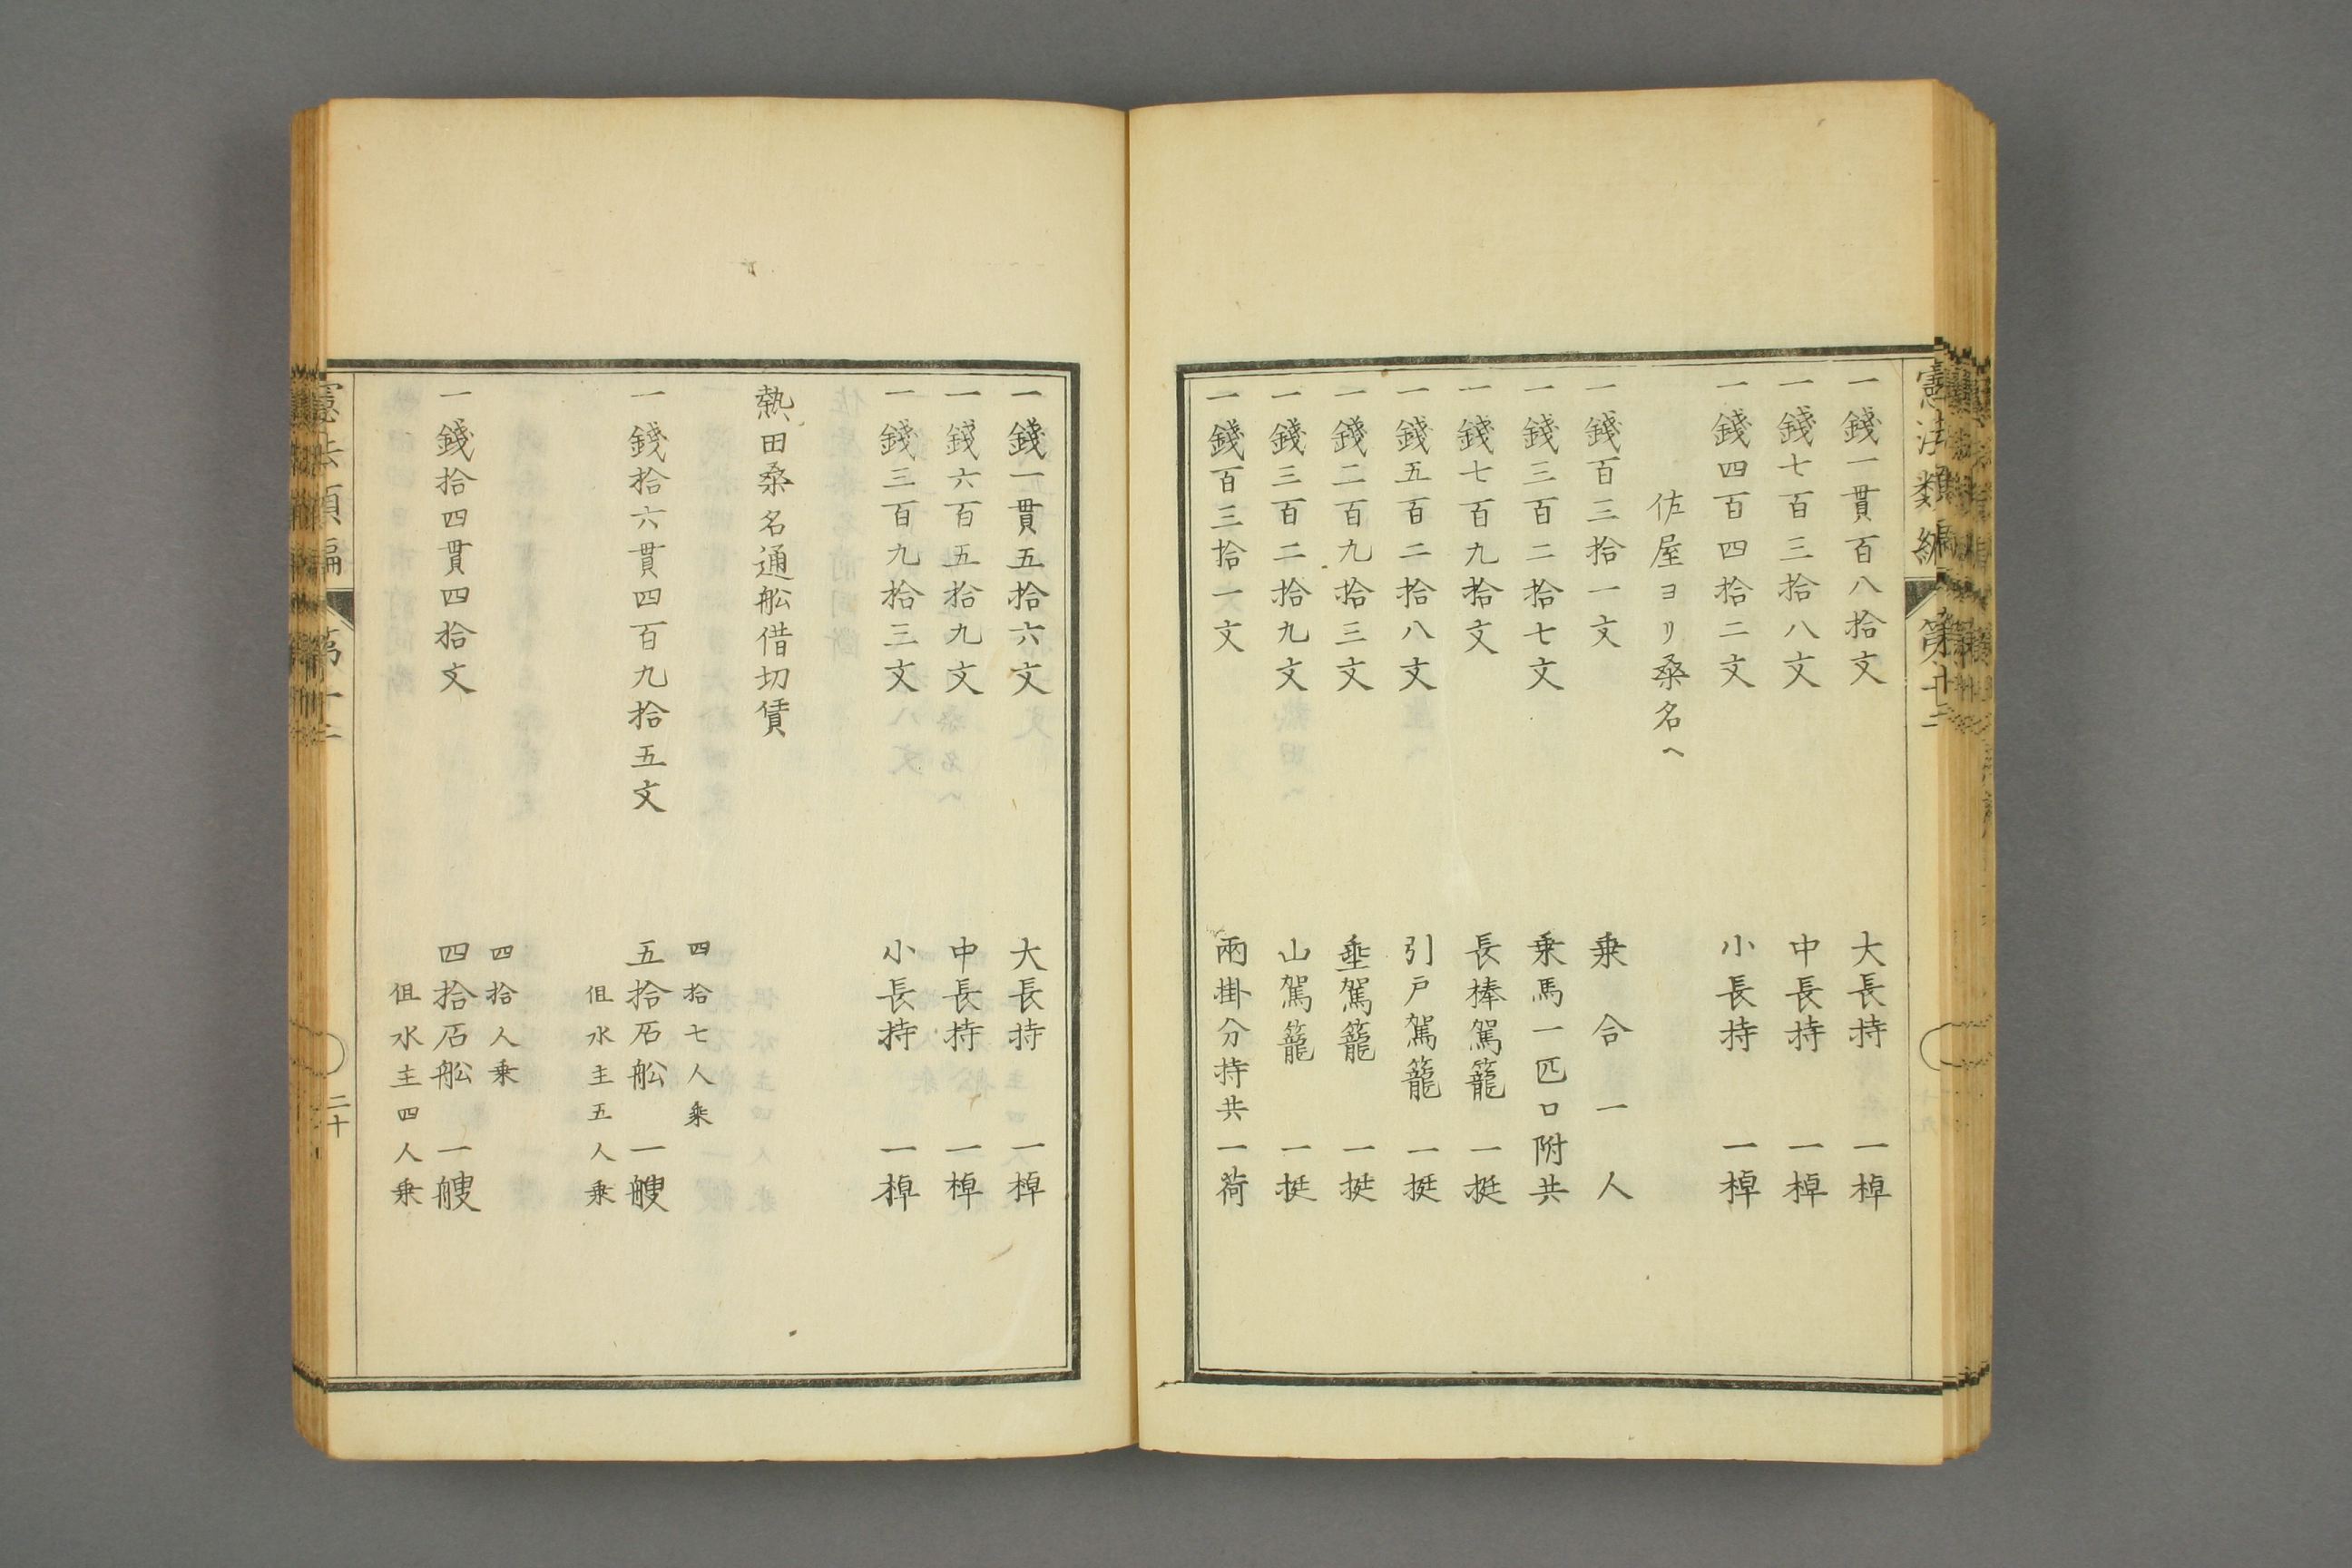 憲法類編 第十二
一錢一貫百八拾文 大長持 一棹
一錢七百三拾八文 中長持 一棹
一錢四百四拾二文 小長持 一棹
佐屋ヨリ桑名ヘ
一錢百三拾一文 乗合一人
一錢三百二拾七文 乗馬一匹口附共
一錢七百九拾文 長棒駕籠 一挺
一錢五百二拾八文 引戸駕籠 一挺
一錢二百九拾三文 垂駕籠 一挺
一錢三百二拾九文 山駕籠 一挺
一錢百三拾一文 兩掛分持共 一荷
一錢一貫五拾六文 大長持 一棹
一錢六百五拾九文 中長持 一棹
一錢三百九拾三文 小長持 一棹
熱田桑名通舩借切賃
四拾七人乗
一錢拾六貫四百九拾五文 五拾石舩 一艘
伹水主五人乗
四拾人乗
一錢拾四貫四拾文 四拾石舩 一艘
伹水主四人乗
憲法類編 第十二 二十